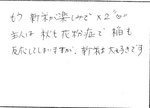 もう 新米が楽しみで×2が
主人は 秋も花粉症で 稲も
反応してしまいますが、新米は大好きです